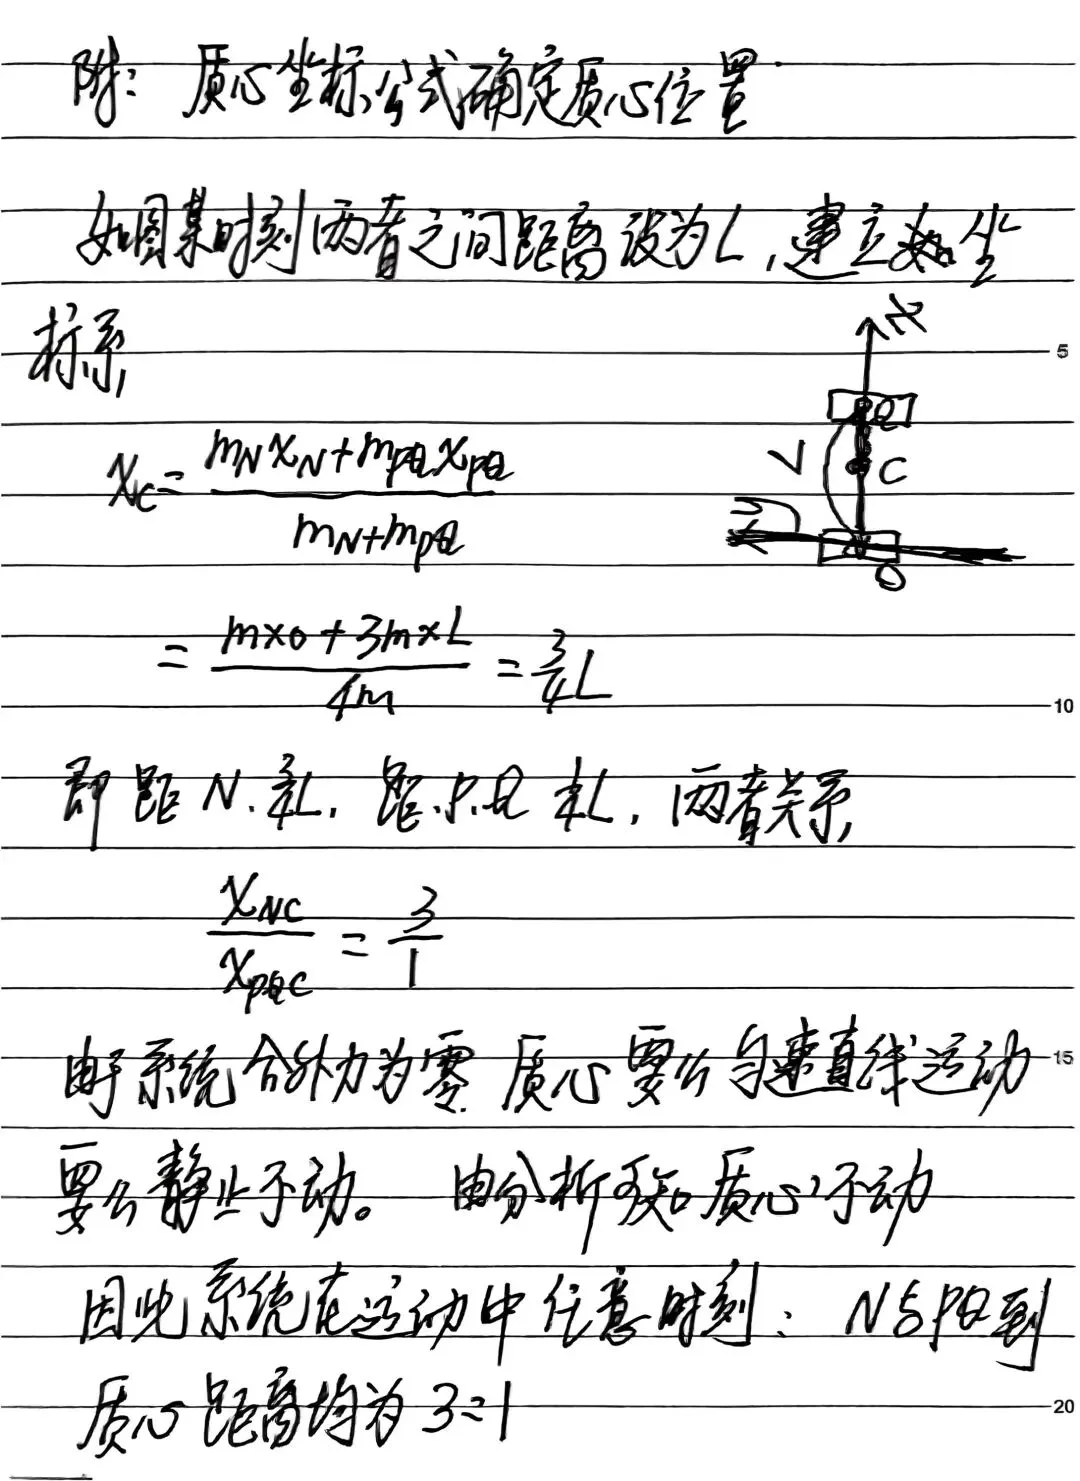 附: 质心坐标公式确定质心位置
如图某时刻两者之间距离设为L,建立如坐
标系,
5
x
Q
L
C
N
O
x_C = (m_N x_N + m_PQ x_PQ) / (m_N + m_PQ)
= (m×0 + 3m×L) / 4m = 3/4 L
10
即距N、3/4L, 距P、Q 1/4L, 两者关系,
x_NC / x_PQC = 3/1
由于系统合外力为零 质心要么匀速直线运动
15
要么静止不动。 由分析可知质心不动
因此系统在运动中任意时刻: N与PQ到
质心距离均为3:1
20